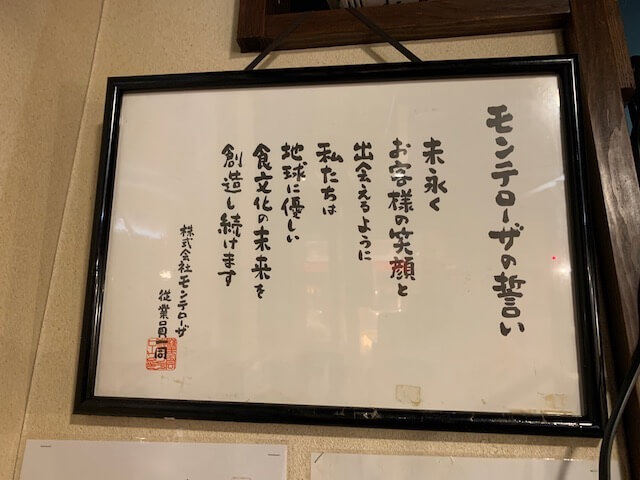 モンテローザの誓い
末永く
お客様の笑顔と
出会えるように
私たちは
地球に優しい
食文化の未来を
創造し続けます
株式会社モンテローザ
従業員一同